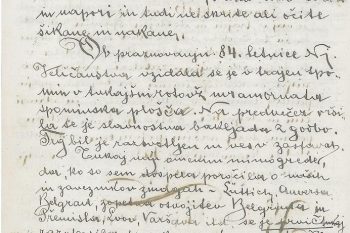 in napori in tudi neiskrite ali očite
šikane in nakane.
Ob praznovanju 84. letnice Nj.
Veličanstva vzidala se je v trajen spo-
min v tukajšni rotovž mramornata
spominska plošča. Na predvečer vršila
se je slavnostna bakljada z godbo.
Trg bil je razsvetljen in ves v zastavah.
Tukaj naj omenim mimogrede,
da, ko so sem dospela poročila o naših
in zaveznikov zmagah - Lüttich, Anversa
Belgrad, zopetna osvojitev Belgrada in
Přemisla, Lvov, Varšava itd. se je